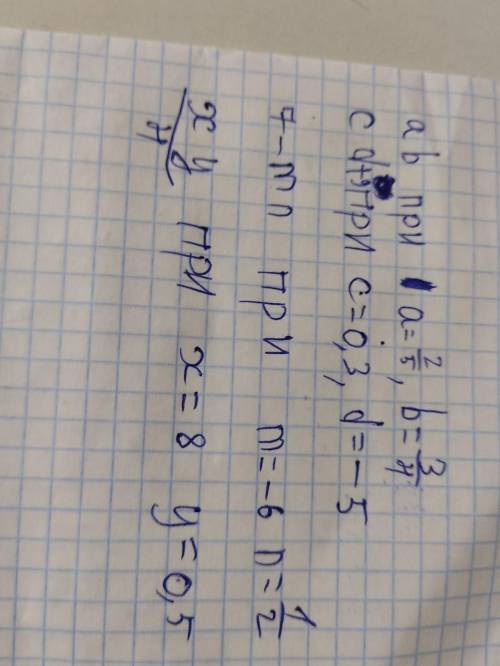 ab при a=2/5, b=3/4
cd+9 при c=0,3, d=-5
7-mn при m=-6 n=1/2
xy/4 при x=8 y=0,5